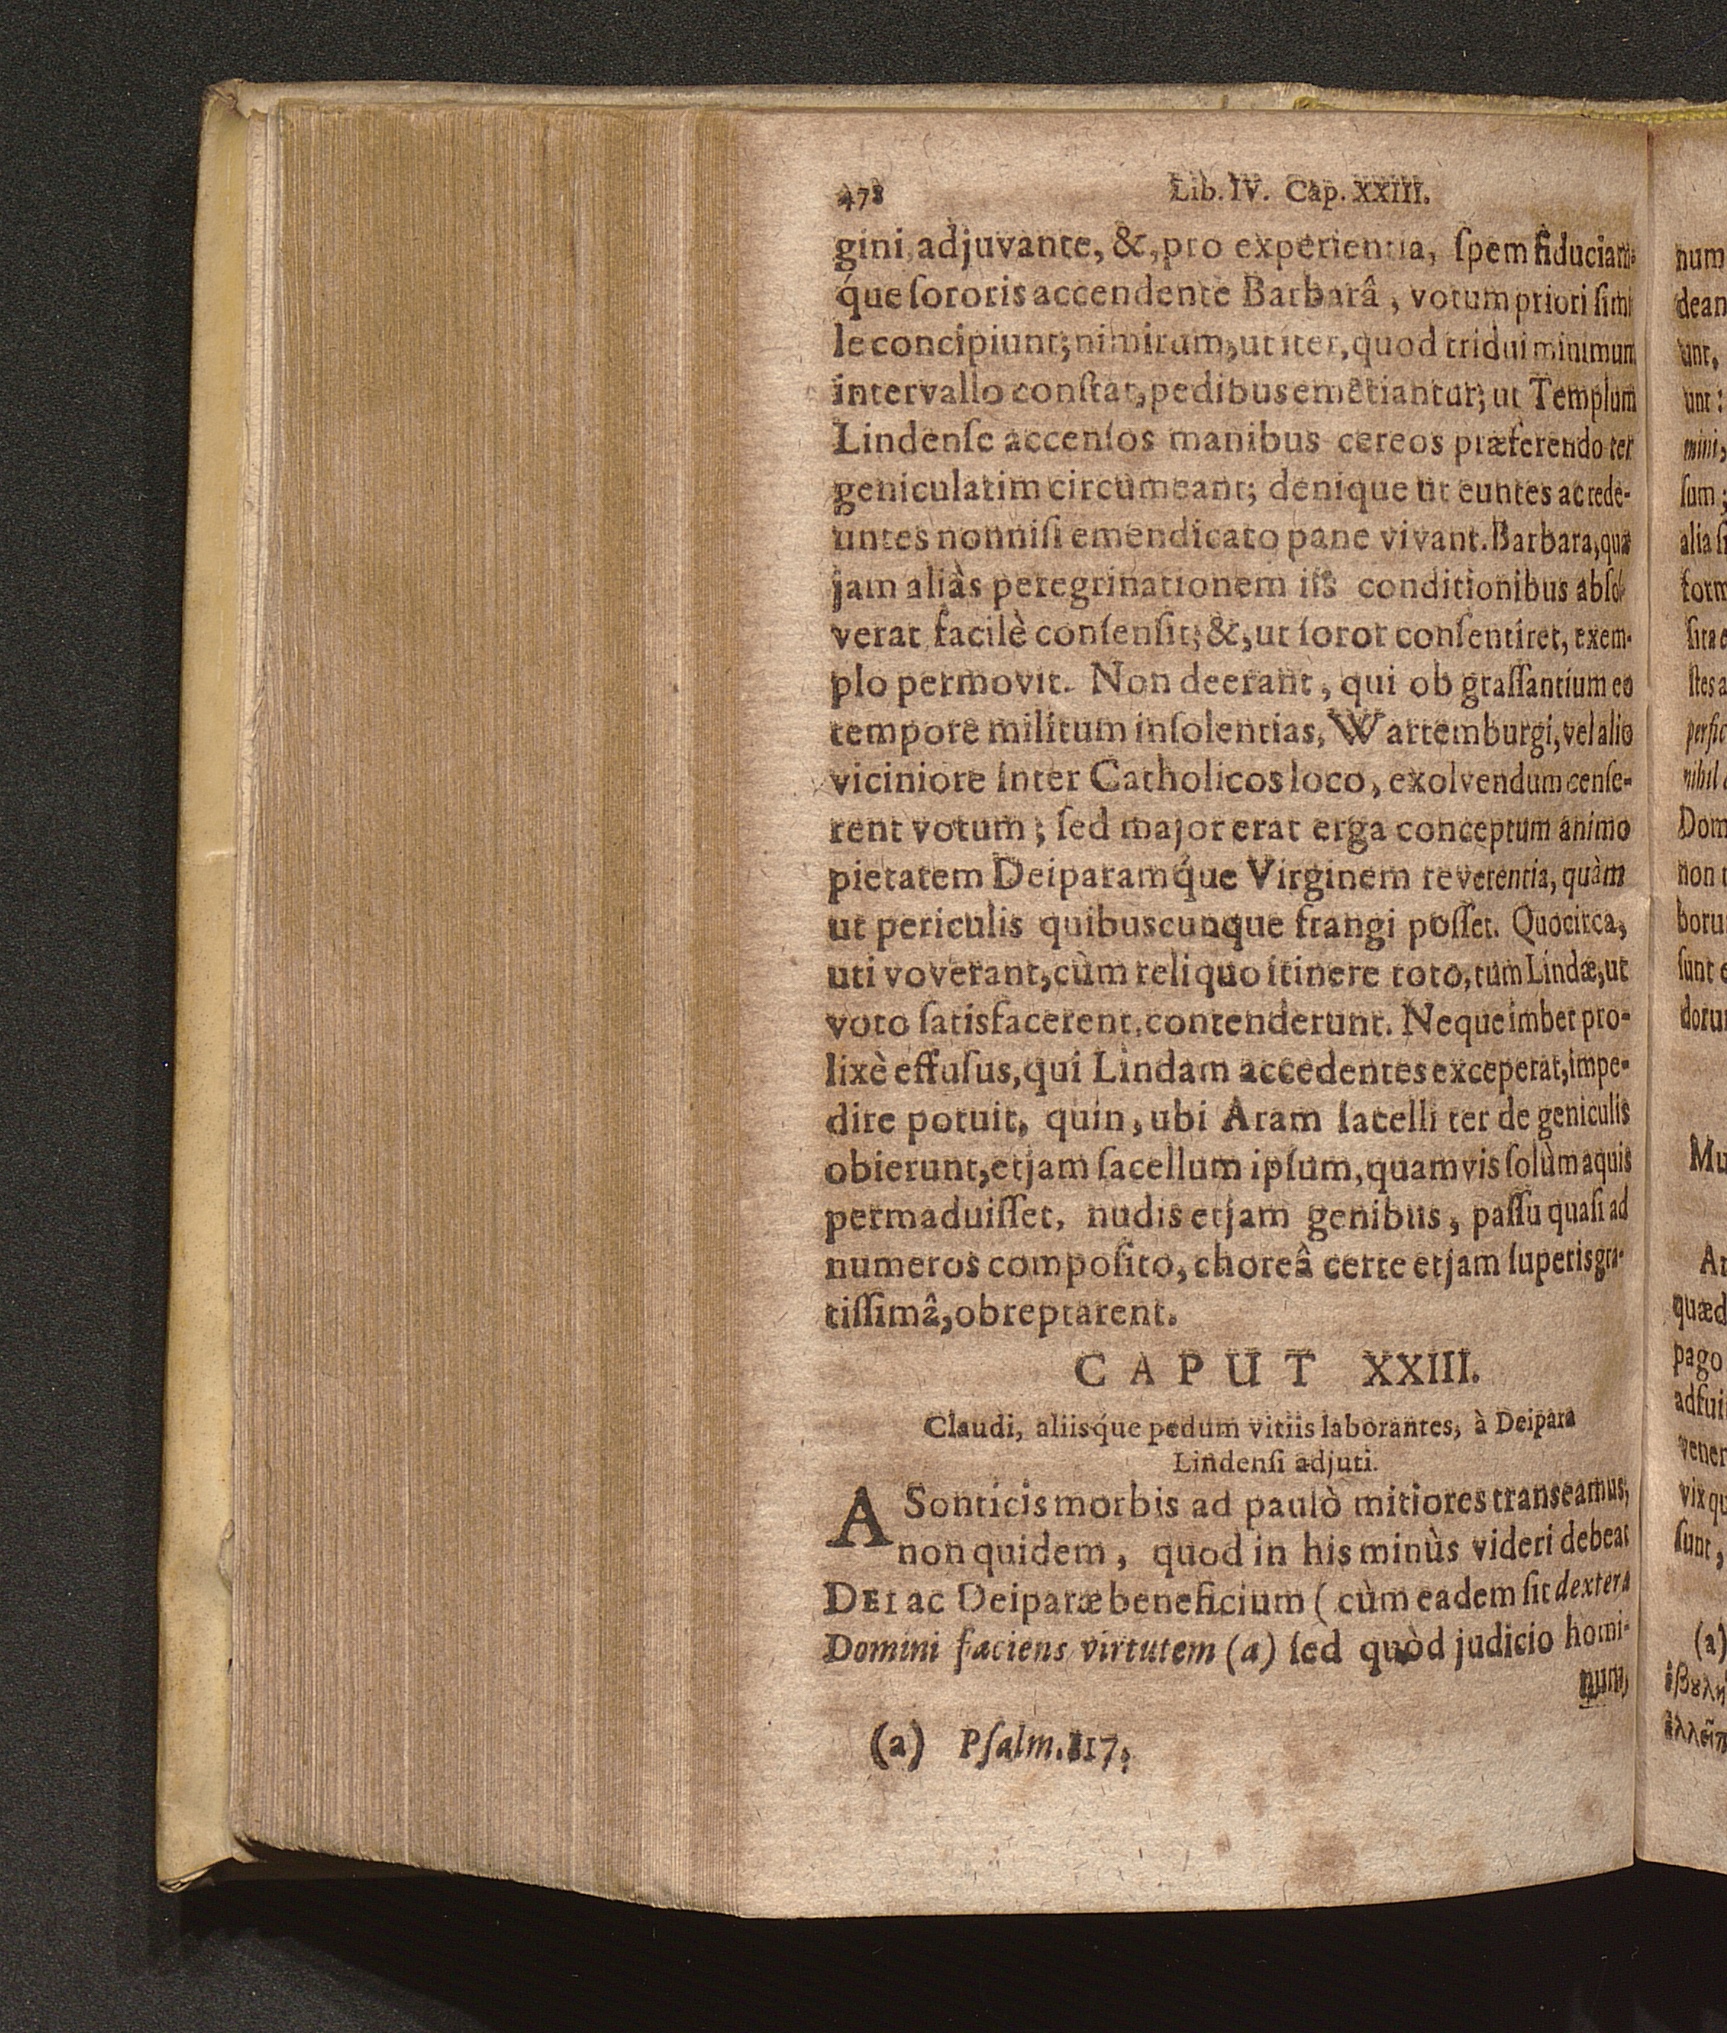 478 Lib. IV. Cap. XXIII.
gini, adjuvante, &, pro experientia, ſpem fiduciam-
q́ue ſororis accendente Barbarâ, votum priori ſimi
le concipiunt; nimirum, ut iter, quod tridui minimum
intervallo conſtat, pedibus emetiantur; ut Templum
Lindenſe accenſos manibus cereos præferendo ter
geniculatim circumeant; denique ut euntes ac rede-
untes nonniſi emendicato pane vivant. Barbara, quæ
jam aliàs peregrinationem iis conditionibus abſol
verat facilè conſenſit; &, ut ſoror conſentiret, exem-
plo permovit. Non deerant, qui ob graſſantium eo
tempore militum inſolentias, Wartemburgi, vel alio
viciniore inter Catholicos loco, exolvendum cenſe-
rent votum; ſed major erat erga conceptum animo
pietatem Deiparamq́ue Virginem reverentia, quàm
ut periculis quibuscunque frangi poſſet. Quocirca,
uti voverant, cùm reliquo itinere toto, tum Lindæ, ut
voto ſatisfacerent, contenderunt. Neque imber pro-
lixè effuſus, qui Lindam accedentes exceperat, impe-
dire potuit, quin, ubi Aram ſacelli ter de geniculis
obierunt, etjam ſacellum ipſum, quamvis ſolùm aquis
permaduiſſet, nudis etjam genibus, paſſu quaſi ad
numeros compoſito, choreâ certe etjam ſuperis gra-
tiſſimâ, obreptarent.
CAPUT XXIII.
Claudi, aliisq́ue pedum vitiis laborantes, à Deipara
Lindenſi adjuti.
A Sonticis morbis ad paulò mitiores transeamus,
non quidem, quod in his minùs videri debeat
DEI ac Deiparæ beneficium ( cùm eadem ſit dextera
Domini faciens virtutem (a) ſed quòd judicio homi-
num,
(a) Pſalm. 117.
num
dean
unt,
unt:
mini,
ſum;
alia ſi
form
ſita e
ſtes a
perfic
nihil
Dom
non
boru
ſunt e
doru
Mu
quæd
pago
adfui
vener
vix qu
ſunt,
(a)